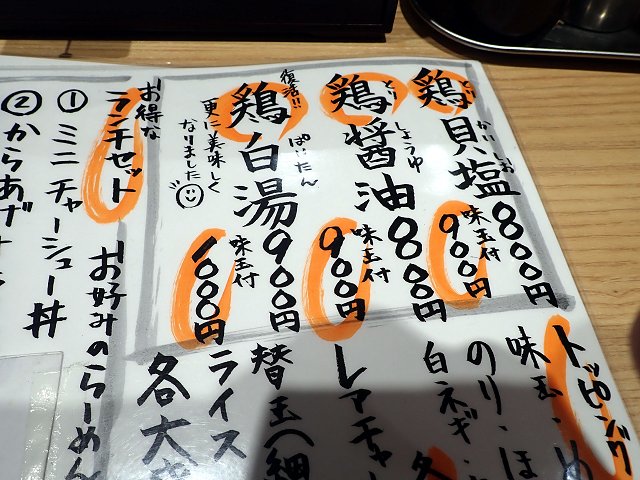 鶏貝塩 800円
とり かい しお
味玉付 900円
鶏醤油 800円
とり しょうゆ
味玉付 900円
復活!!
鶏白湯 900円
ぱいたん
更に美味しく
なりました
味玉付 1000円
トッピング
味玉・
のり・ほ
白ネギ・
各
レアチャー
替玉(細
ライス
各大
お得な
ランチセット
お好みのらーめん
① ミニチャーシュー丼
② からあげ